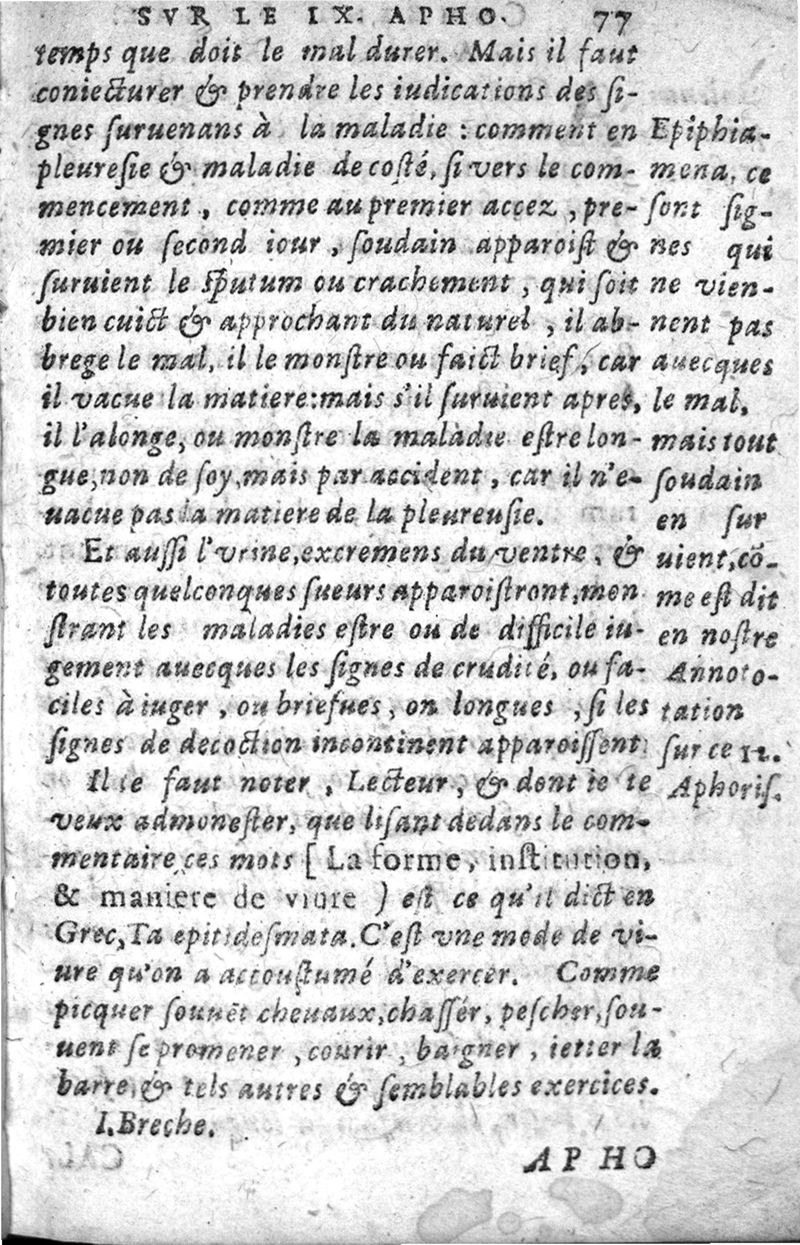 SVR LE IX. APHO. 77
temps que doit le mal durer. Mais il faut
coniecturer & prendre les iudications des ſi-
gnes ſuruenans à la maladie : comment en
pleureſie & maladie de coſté, ſi vers le com-
mencement, comme au premier accez, pre-
mier ou ſecond iour, ſoudain apparoiſt &
ſuruient le Sputum ou crachement, qui ſoit
bien cuict & approchant du naturel, il ab-
brege le mal, il le monſtre ou faict brief, car
il vacue la matiere: mais s'il ſuruient apres,
il l'alonge, ou monſtre la maladie eſtre lon-
gue, non de ſoy, mais par accident, car il n'e-
uacue pas la matiere de la pleureuſie.
Et auſſi l'vrine, excremens du ventre, &
toutes quelconques ſueurs apparoiſtront, mon
ſtrant les maladies eſtre ou de difficile iu-
gement auecques les ſignes de crudité, ou fa-
ciles à iuger, ou briefues, on longues, ſi les
ſignes de decoction incontinent apparoiſſent.
Il te faut noter, Lecteur, & dont ie te
veux admoneſter, que liſant dedans le com-
mentaire ces mots [ La forme, inſtitution,
& maniere de viure ) eſt ce qu'il dict en
Grec, Ta epitideſmata. C'eſt vne mode de vi-
ure qu'on a accouſtumé d'exercer. Comme
picquer ſouuēt cheuaux, chaſſér, peſcher, ſou-
uent ſe promener, courir, baigner, ietter la
barre, & tels autres & ſemblables exercices.
I. Breche.
Epiphia-
mena, ce
ſont ſig-
nes qui
ne vien-
nent pas
auecques
le mal,
mais tout
ſoudain
en ſur
uient, cō-
me eſt dit
en noſtre
Annoto-
tation
ſur ce 12.
Aphoriſ.
APHO